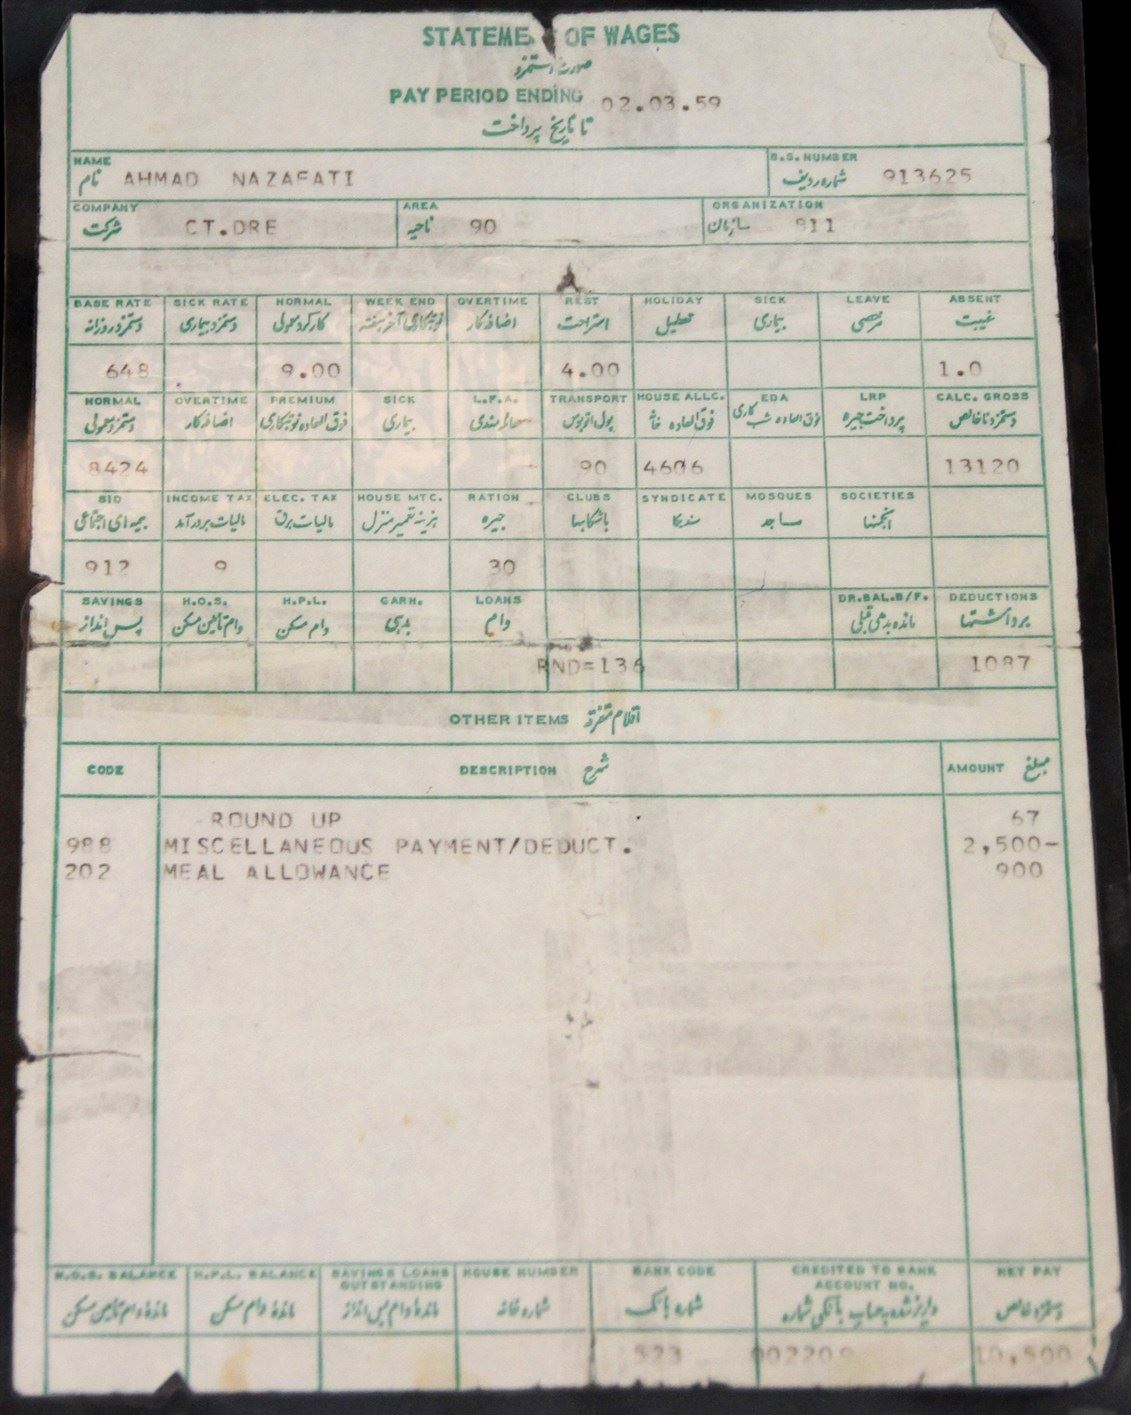 STATEMENT OF WAGES
صورت دستمزد
PAY PERIOD ENDING 02.03.59
تا تاریخ پرداخت
NAME B.S. NUMBER
نام AHMAD NAZAFATI شماره ردیف 913625
COMPANY AREA ORGANIZATION
شرکت CT.DRE ناحیه 90 سازمان 811
BASE RATE SICK RATE NORMAL WEEK END OVERTIME REST HOLIDAY SICK LEAVE ABSENT
دستمزد روزانه دستمزد بیماری کارکرد معمولی نوبتکاری آخر هفته اضافه کار استراحت تعطیل بیماری مرخصی غیبت
648 9.00 4.00 1.0
NORMAL OVERTIME PREMIUM SICK L.F.A. TRANSPORT HOUSE ALLC. EDA LRP CALC. GROSS
دستمزد معمولی اضافه کار فوق العاده نوبتکاری بیماری پول اتوبوس فوق العاده فوق العاده شب کاری پرداخت جیره دستمزد ناخالص
8424 90 4606 13120
SIO INCOME TAX ELEC. TAX HOUSE MTC. RATION CLUBS SYNDICATE MOSQUES SOCIETIES
بیمه های اجتماعی مالیات بر درآمد مالیات برق هزینه تعمیر منزل جیره باشگاهها سندیکا مساجد انجمنها
912 9 30
SAVINGS H.O.S. H.P.L. GARN. LOANS DR.BAL.B/F. DEDUCTIONS
پس انداز وام تامین مسکن وام مسکن بدهی وام مانده بدهی قبلی برداشتها
RND=136 1087
OTHER ITEMS اقلام متفرقه
CODE DESCRIPTION شرح AMOUNT مبلغ
ROUND UP 67
988 MISCELLANEOUS PAYMENT/DEDUCT. 2,500-
202 MEAL ALLOWANCE 900
H.O.S. BALANCE H.P.L. BALANCE SAVINGS LOANS OUTSTANDING HOUSE NUMBER BANK CODE CREDITED TO BANK ACCOUNT NO. NET PAY
مانده وام تامین مسکن مانده وام مسکن مانده وام پس انداز شماره خانه شماره بانک واریز شده بحساب بانکی شماره دستمزد خالص
523 002209 10,500